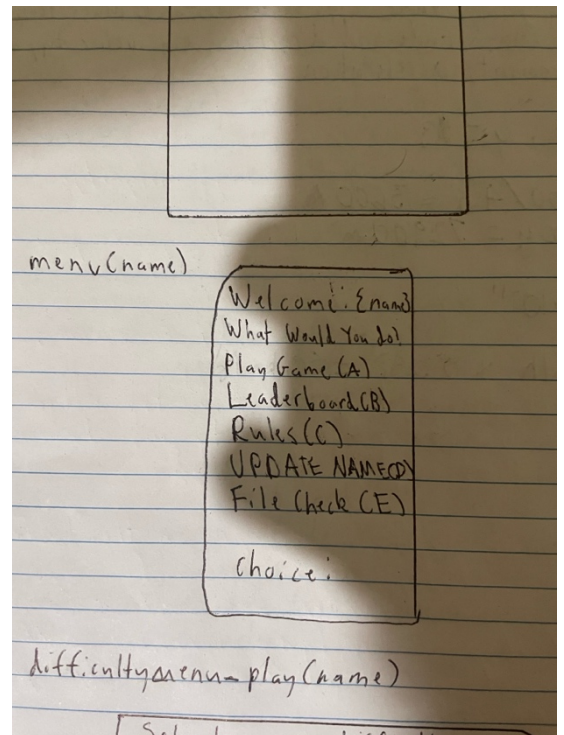 menu(name)
Welcome: {name}
What Would You do?
Play Game (A)
Leaderboard (B)
Rules (C)
UPDATE NAME(D)
File Check (E)
Choice:
difficultymenu_play(name)